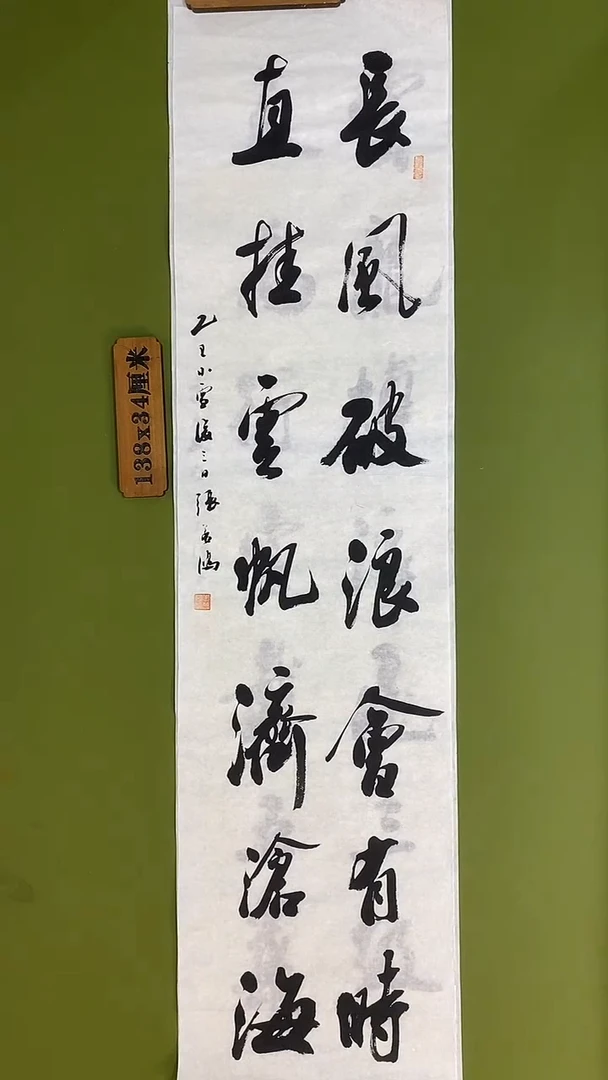 長風破浪會有時
直挂雲帆濟滄海
小雪後三日張
138x34厘米